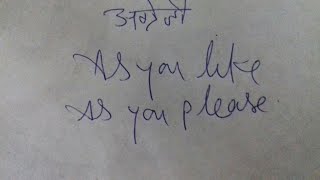 अंग्रेजी
As you like
As you please